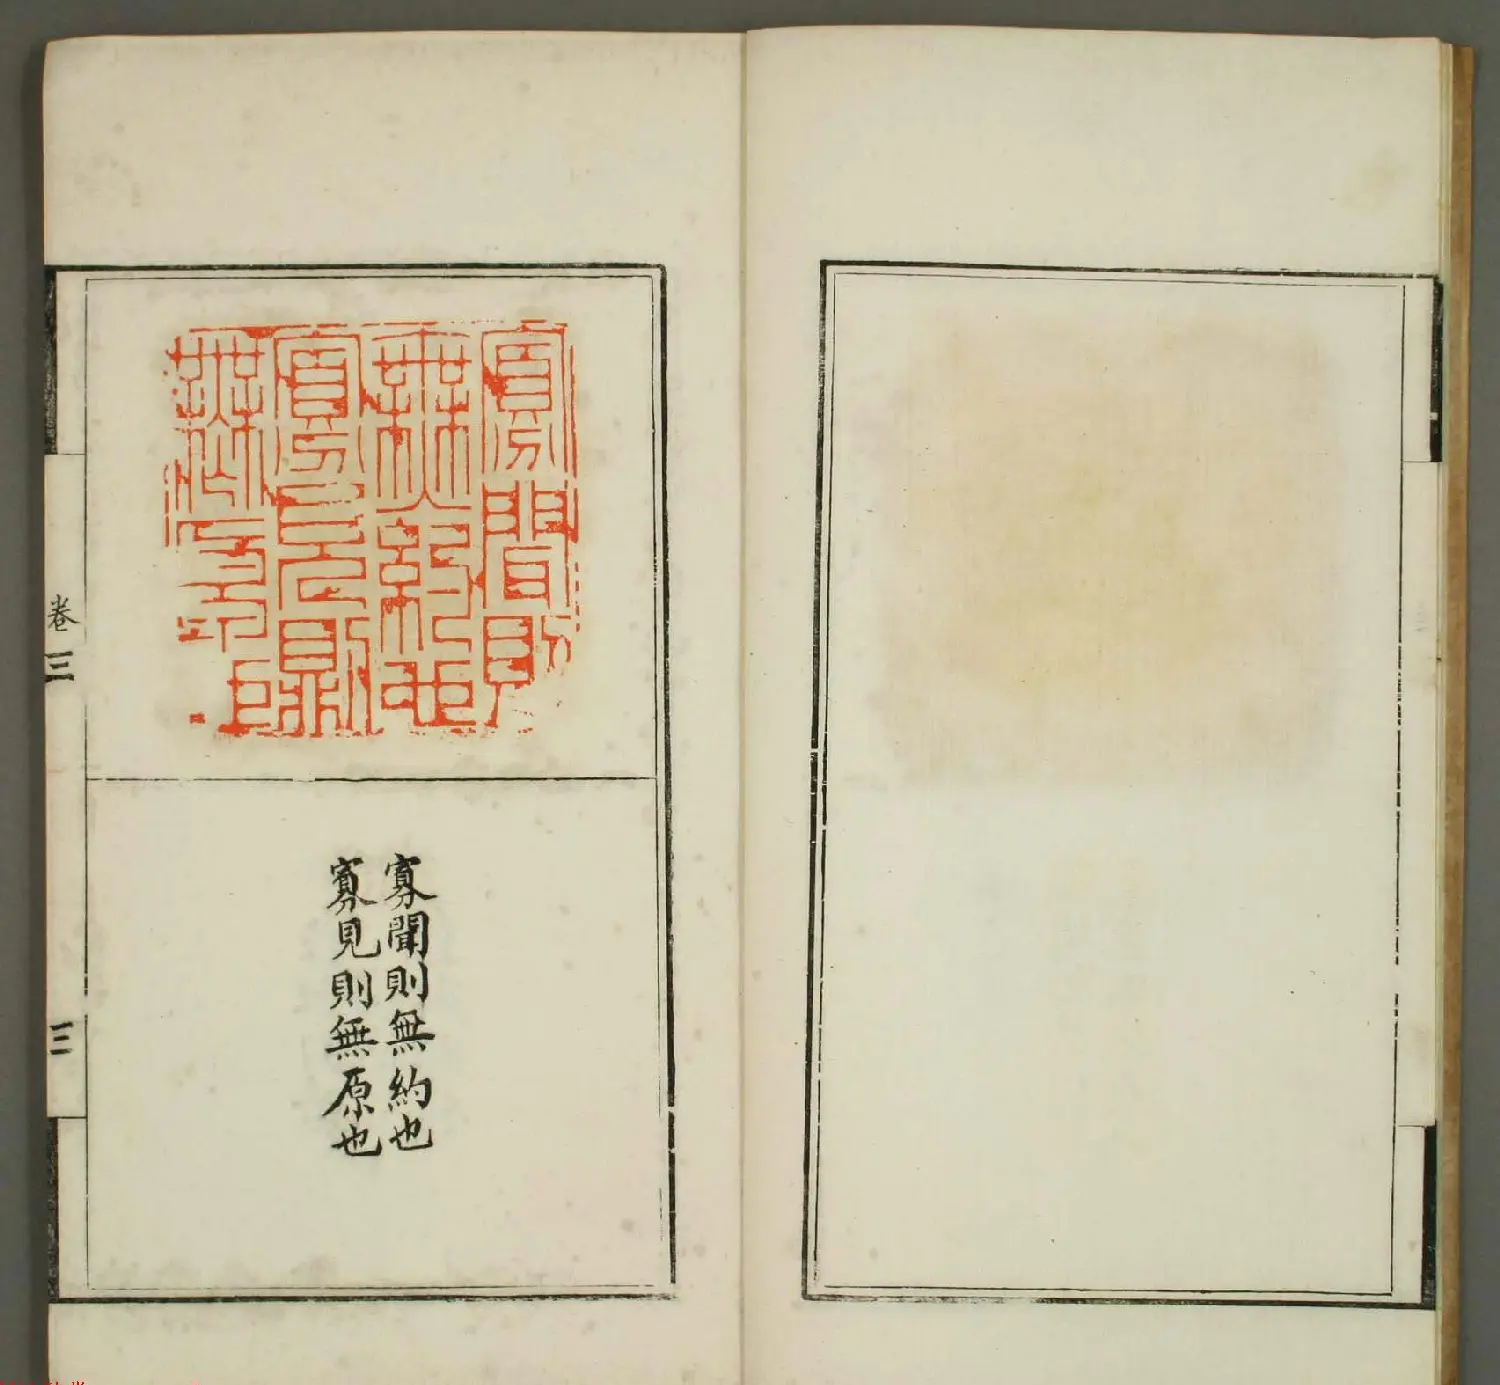 寡聞則
無約也
寡見則
無原也
寡聞則無約也
寡見則無原也
卷三
三